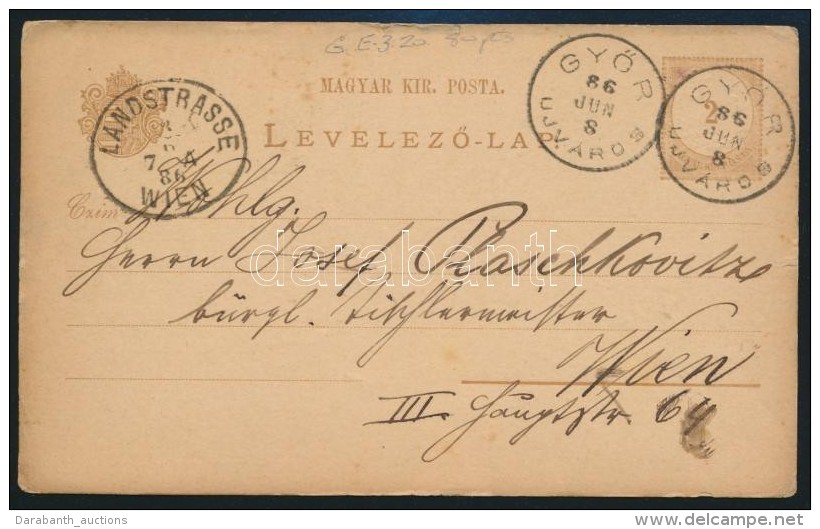 G. E. 3. 20
MAGYAR KIR. POSTA.
LEVELEZŐ-LAP.
GYŐR
86
JUN
8
UJVÁROS
GYŐR
86
JUN
8
UJVÁROS
2
LANDSTRASSE
7 4
86
WIEN
Czim
Wohlg.
Herrn Josef Raschkovitz
bürgl. Tischlermeister
Wien
III. Hauptstr. 64
darabanth
Darabanth_auctions
delcampe.net